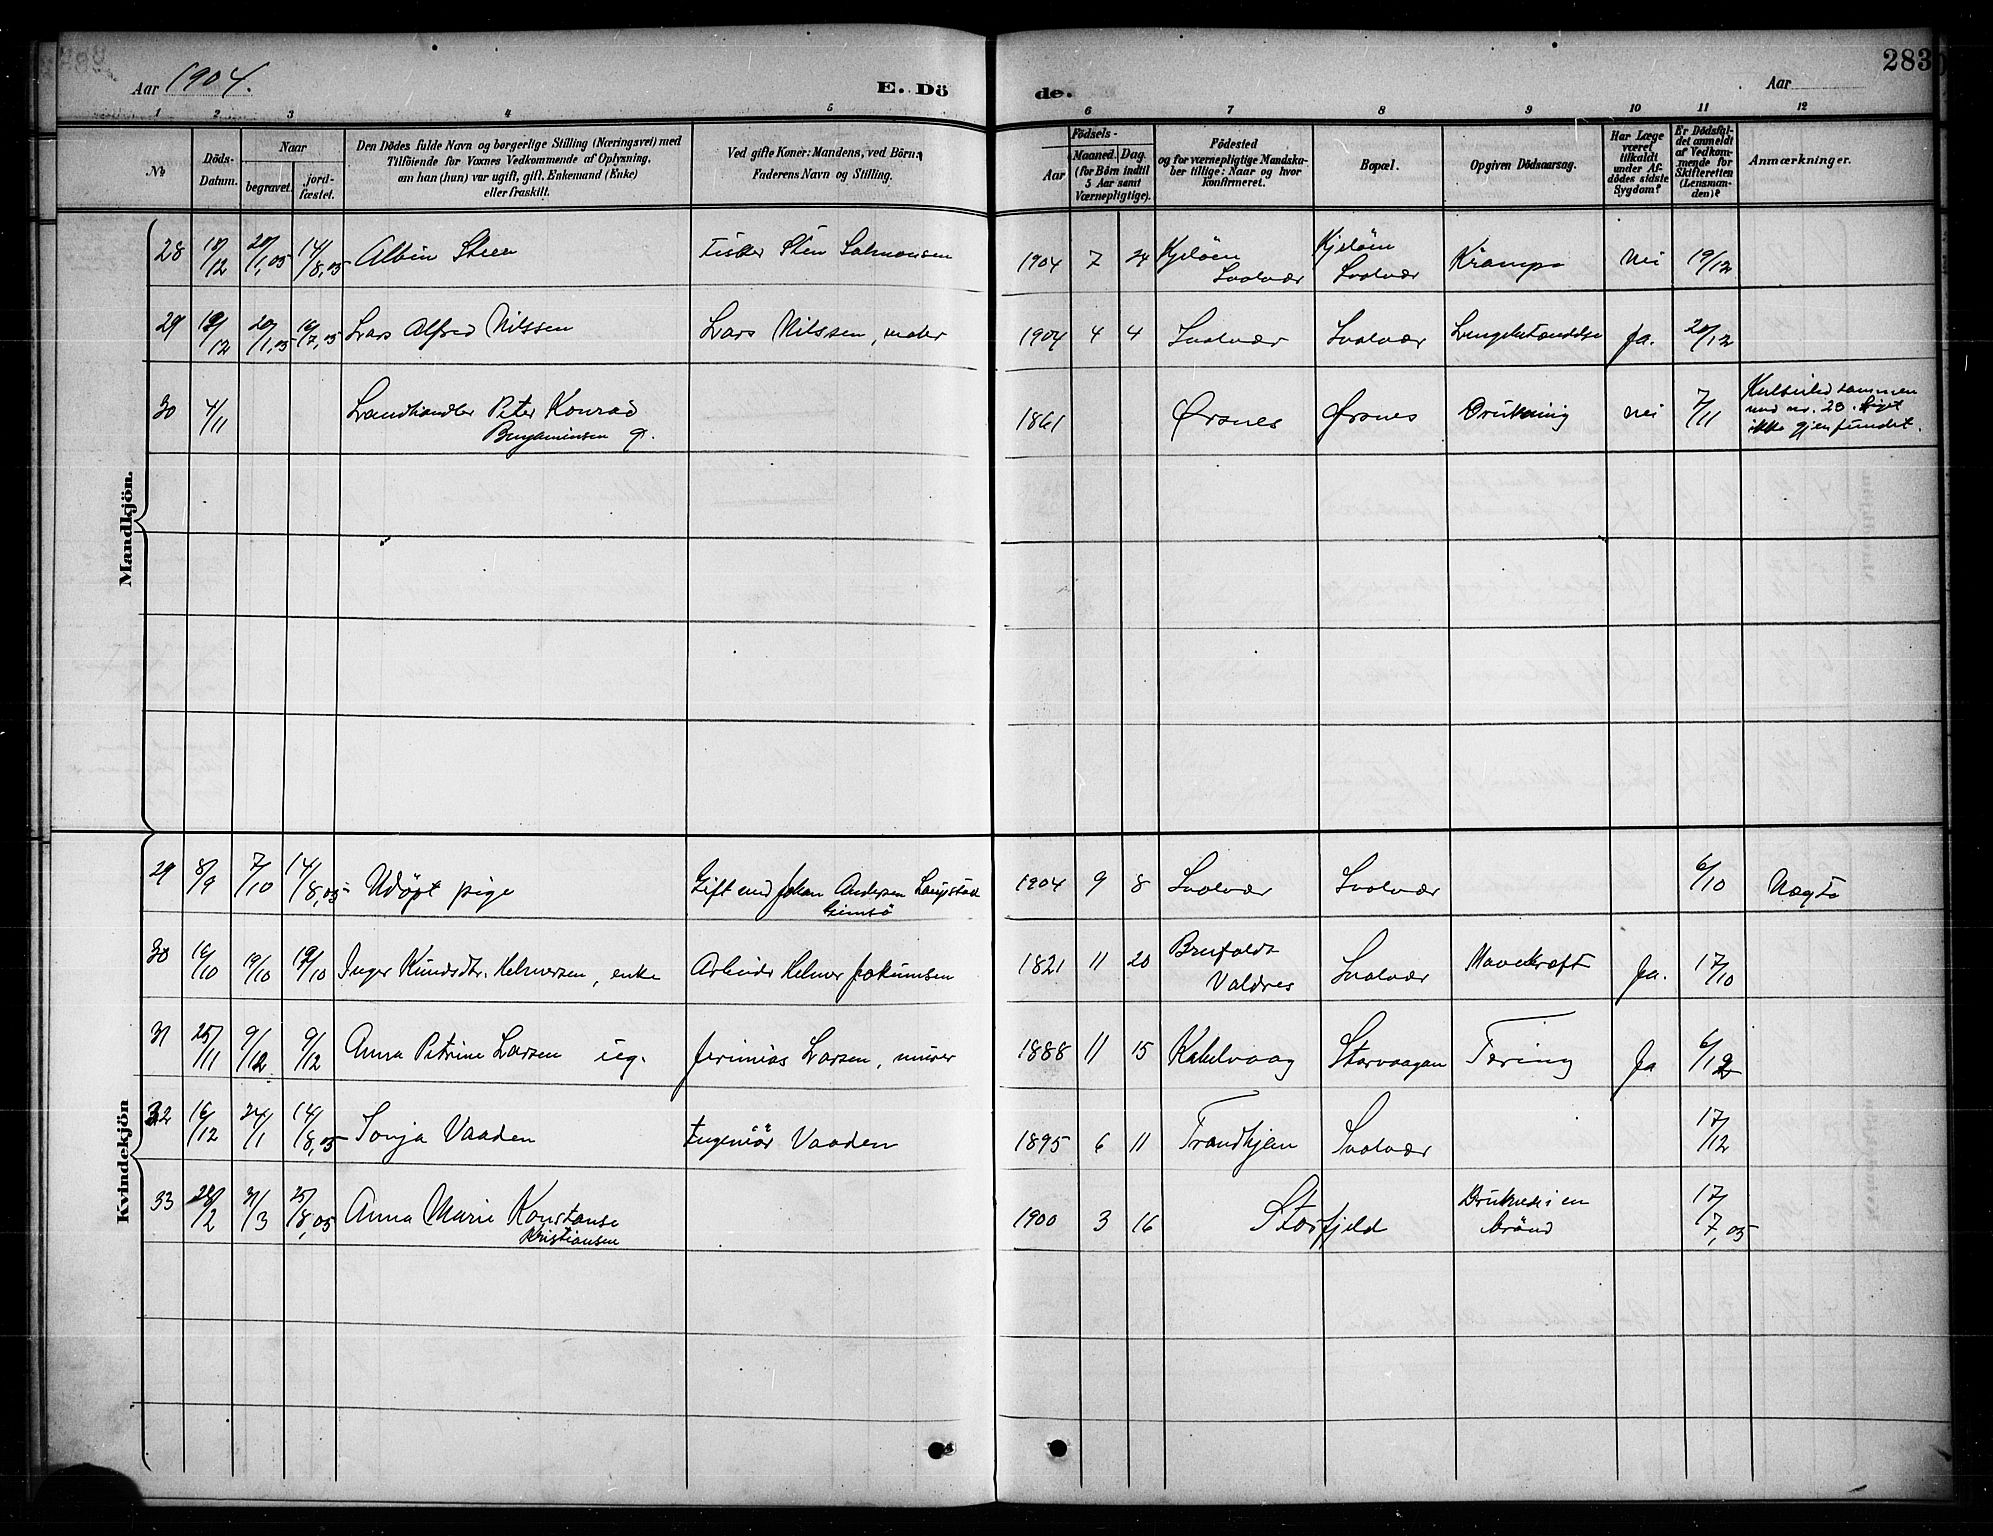 Aar 1904.
E. Dö
de.
Aar
283
1 2 3 4 5 6 7 8 9 10 11 12
No
Döds-Datum.
Naar
begravet.
jord-fæstet.
Den Dödes fulde Navn og borgerlige Stilling (Næringsvei) med
Tilföiende for Voxnes Vedkommende af Oplysning,
om han (hun) var ugift, gift, Enkemand (Enke)
eller fraskilt.
Ved gifte Koner: Mandens, ved Börn:
Faderens Navn og Stilling.
Födsels-
Aar
Maaned. Dag.
(for Börn indtil
5 Aar samt
Værnepligtige).
Födested
og for værnepligtige Mandska-
ber tillige: Naar og hvor
konfirmeret.
Bopæl.
Opgiven Dödsaarsag.
Har Læge
været
tilkaldt
under Af-
dödes sidste
Sygdom?
Er Dödsfal-
det anmeldt
af Vedkom-
mende for
Skifteretten
(Lensman-
den)?
Anmærkninger.
Mandkjön.
28 18/12 20/1,05 14/8,05 Albin Steen Fisker Sten Salmonsen 1904 7 24 Kjeløen Svolvær Kjeløen Svolvær Krampe Nei 19/12
29 19/12 20/1,05 16/7,05 Lars Alfred Nilssen Lars Nilssen, maler 1904 4 4 Svolvær Svolvær Lungebetændelse Ja. 20/12
30 4/11 Landhandler Peter Konrad Benjaminsen g. 1861 Ørsnes Ørsnes Drukning Nei 7/11 Kulseiled sammen med nr. 23. Liget ikke gjenfundet.
Kvindekjön
29 8/9 7/10 14/8,05 Udöpt pige Gift md Johan Andersen Laupstad Gimsö 1904 9 8 Svolvær Svolvær 6/10 Uægte
30 16/10 19/10 19/10 Inger Knudsdtr. Helmersen, enke Arbeider Helmer Jokumsen 1821 11 20 Valdres Svolvær Mavekræft Ja. 17/10
31 25/11 9/12 9/12 Anna Petrine Larsen ug. Jerimias Larsen, murer 1888 11 15 Kabelvaag Storvaagan Tæring Ja 6/12
32 16/12 24/1 14/8,05 Sonja Vaaden Ingeniör Vaaden 1895 6 11 Trondhjem Svolvær 17/12
33 28/2 31/3 25/8,05 Anna Marie Konstanse Kristiansen 1900 3 16 Storfjeld Druknede i en brönd 17/7,05